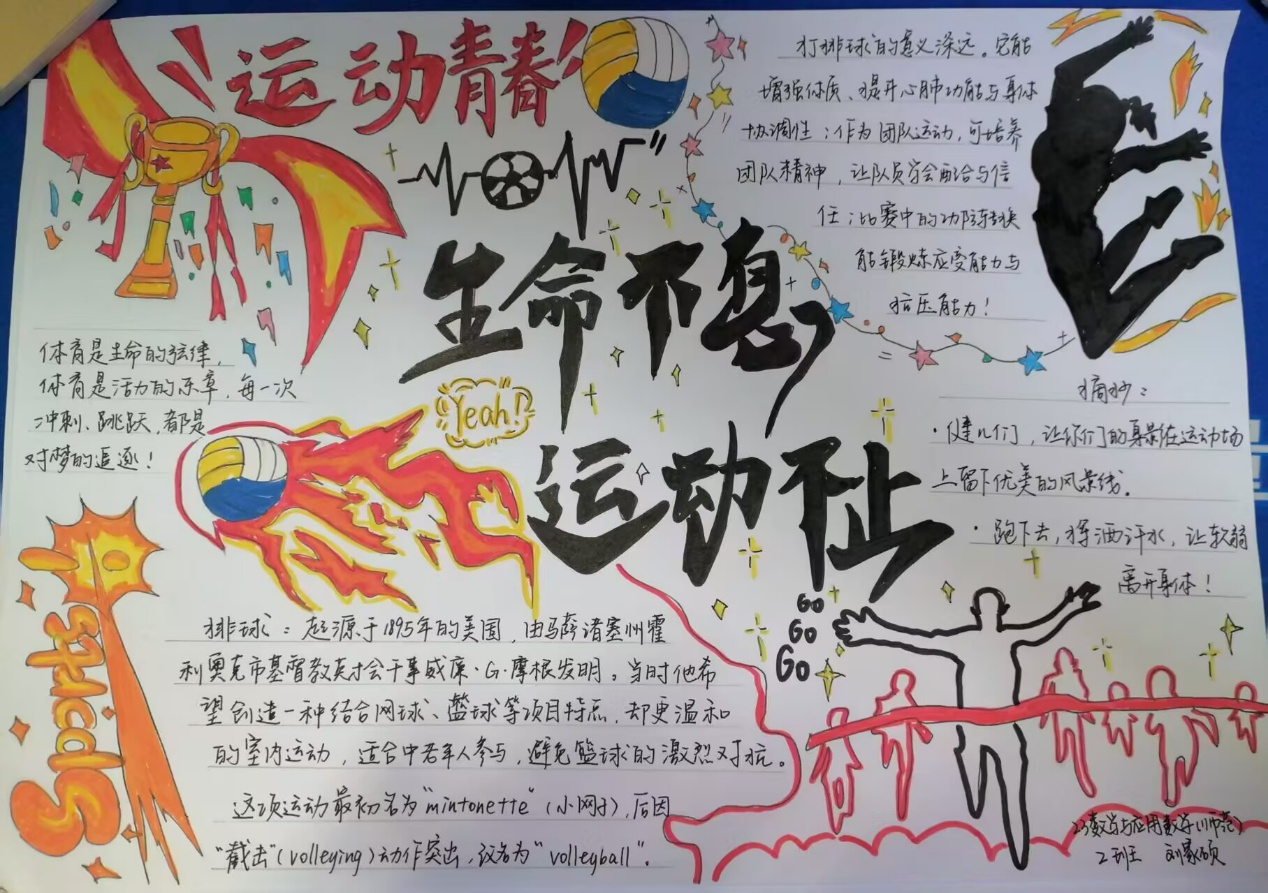 运动青春
打排球的意义深远。它能
增强体质、提升心肺功能与身体
协调性；作为团队运动，可培养
团队精神，让队员学会配合与信
任；比赛中的攻防转换
能锻炼应变能力与
抗压能力！
生命不息
运动不止
体育是生命的弦律，
体育是活力的乐章，每一次
冲刺、跳跃，都是
对梦的追逐！
Yeah!
摘抄：
·健儿们，让你们的身影在运动场
上留下优美的风景线。
·跑下去，挥洒汗水，让软弱
离开身体！
Go
Go
Go
Sports
排球：起源于1895年的美国，由马萨诸塞州霍
利奥克市基督教青年会干事威廉·G·摩根发明。当时他希
望创造一种结合网球、篮球等项目特点，却更温和
的室内运动，适合中老年人参与，避免篮球的激烈对抗。
这项运动最初名为"mintonette"（小网子），后因
"截击"（volleying）动作突出，改名为"volleyball"。
23数学与应用数学（师范）
2班 刘硕